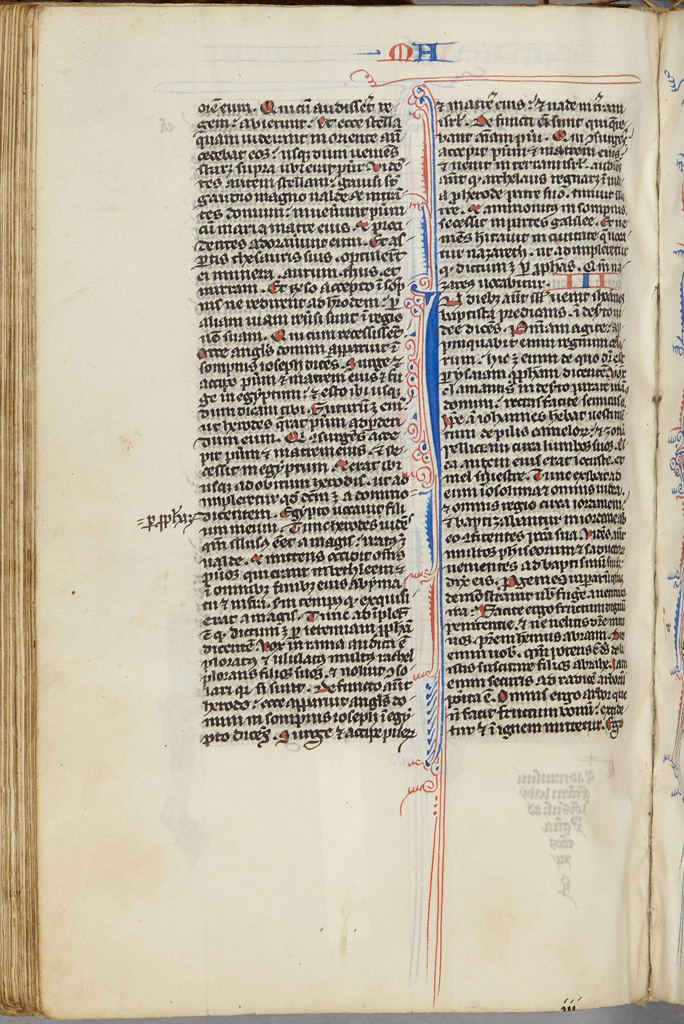 MA
orē eum. Qui cū audissēt re
gem: abierunt. Et ecce stella
quam uiderant in oriente an̄
cedebat eos: usq; dum ueniēs
staret supra ubi erat puer. Uidē
tes autem stellam: gauisi sūt
gaudio magno ualde. Et intrā
tes domum: inuenerūt puerū
cū maria matre eius. Et proci
dentes adorauerunt eum. Et ap
ertis thesauris suis: optulerūt
ei munera. aurum. thus. et
mirram. Et rñso accepto ī sōp
nis ne redirent ad herodem: p
aliam uiam reūsi sunt ī regio
nē suam. Qui cum recessissēt
ecce angls domini apparuit ī
sompnis ioseph dicēs. Surge &
accipe puerū & matrem eius & fu
ge in egyptum: & esto ibi usq;
dum dicam tibi. Futurū ē enī
ut herodes querat puerū ad pden
dum eum. Qui surgēs acce
pit puerū & matrem eius & se
cessit in egyptum. & erat ibi
usq; ad obitum herodis. ut ad
impleretur qd dcm ē a domino
p pphaz
dicentem. Ex egypto uocaui fili
um meum. Tunc herodes uidēs
qm illusus eēt a magis: iratus ē
ualde. & mittens occidit om̄s
puos qui erant in bethleem &
ī omnibus finibus eius a bimatu
& infra. scdm tempus q exquisi
erat a magis. Tunc adīplet
ē q dictum ē p ieremiam pphā
dicentē. Uox in rama audita ē
ploratus & ululatus multus rachel
plorans filios suos. & noluit cōso
lari q̄ nō sunt. Defuncto aūt
herode: ecce apparuit angls do
mini in sompnis ioseph ī egy
pto dicēs. Surge & accipe puer
& matrē eius: & uade in tr̄am
isrl. Defuncti eī sunt qui que
bant aīam pueri. Qui surgēs
accepit puerū & matrem eius
& uenit in terram isrl. audiēs
aūt q archelaus regnaret ī iudea
p herode patre suo: timuit illo
ire. & ammonitus in sompnis
secessit in partes galilee. Et ue
niēs hītauit in ciuitate q uoca
tur nazareth. ut adimpleretur
q dictum ē p pphas. Qm na
zareus uocabitur. III
In diebꝫ aūt illis uenit ihoanes
baptista predicans ī deserto iu
dee dicēs. Peniāam agite: ap
pinquabit enim regnum celo
rum. Hic ē enim de quo dc̄m est
p ysaiam ppham dicentē. Uox
clamantis in deserto parate uiam
domini. rectas facite semitas eius.
Ipe āt iohannes hēbat uestimē
tum de pilis camelorꝫ: & zonā
pelliceam circa lumbos suos. Es
ca autem eius erat locuste. et
mel siluestre. Tunc exibat ad
eum ierosolima & omnis iudea.
& omnis regio circa iordanem:
& baptizabantur in iordane ab
eo cōfitentes pcca sua. Uidēs aūt
multos phiseorum & saduceorum
uenientes ad baptismū suū:
dixit eis. Progenies uiparum quis
demōstrauit uob fugere a uentura
ira? Facite ergo fructum dignū
penitentie. & ne uelitis dicere intra
uos. patrem habemus abraam. Dico
enim uob. qm potens ē ds de la
pidibus suscitare filios abrahe. Iam
enim securis ad radicē arborum
posita ē. Omnis ergo arbor que
nō facit fructum bonū: excide
tur & ī ignem mittetur. Ego
iij